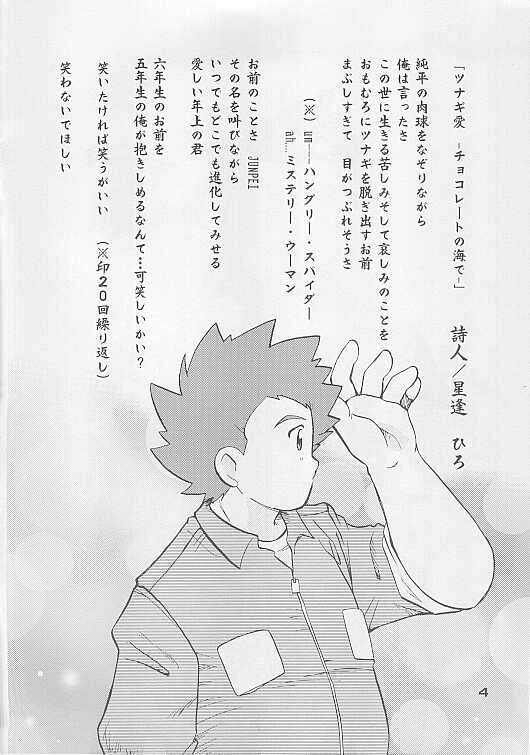 「ツナギ愛 -チョコレートの海で-」
詩人/星逢 ひろ
純平の肉球をなぞりながら
俺は言ったさ
この世に生きる苦しみそして哀しみのことを
おもむろにツナギを脱ぎ出すお前
まぶしすぎて 目がつぶれそうさ
(※) un――ハングリー・スパイダー
ah...ミステリー・ウーマン
お前のことさ JUNPEI
その名を叫びながら
いつでもどこでも進化してみせる
愛しい年上の君
六年生のお前を
五年生の俺が抱きしめるなんて…可笑しいかい?
笑いたければ笑うがいい (※印20回繰り返し)
笑わないでほしい
4